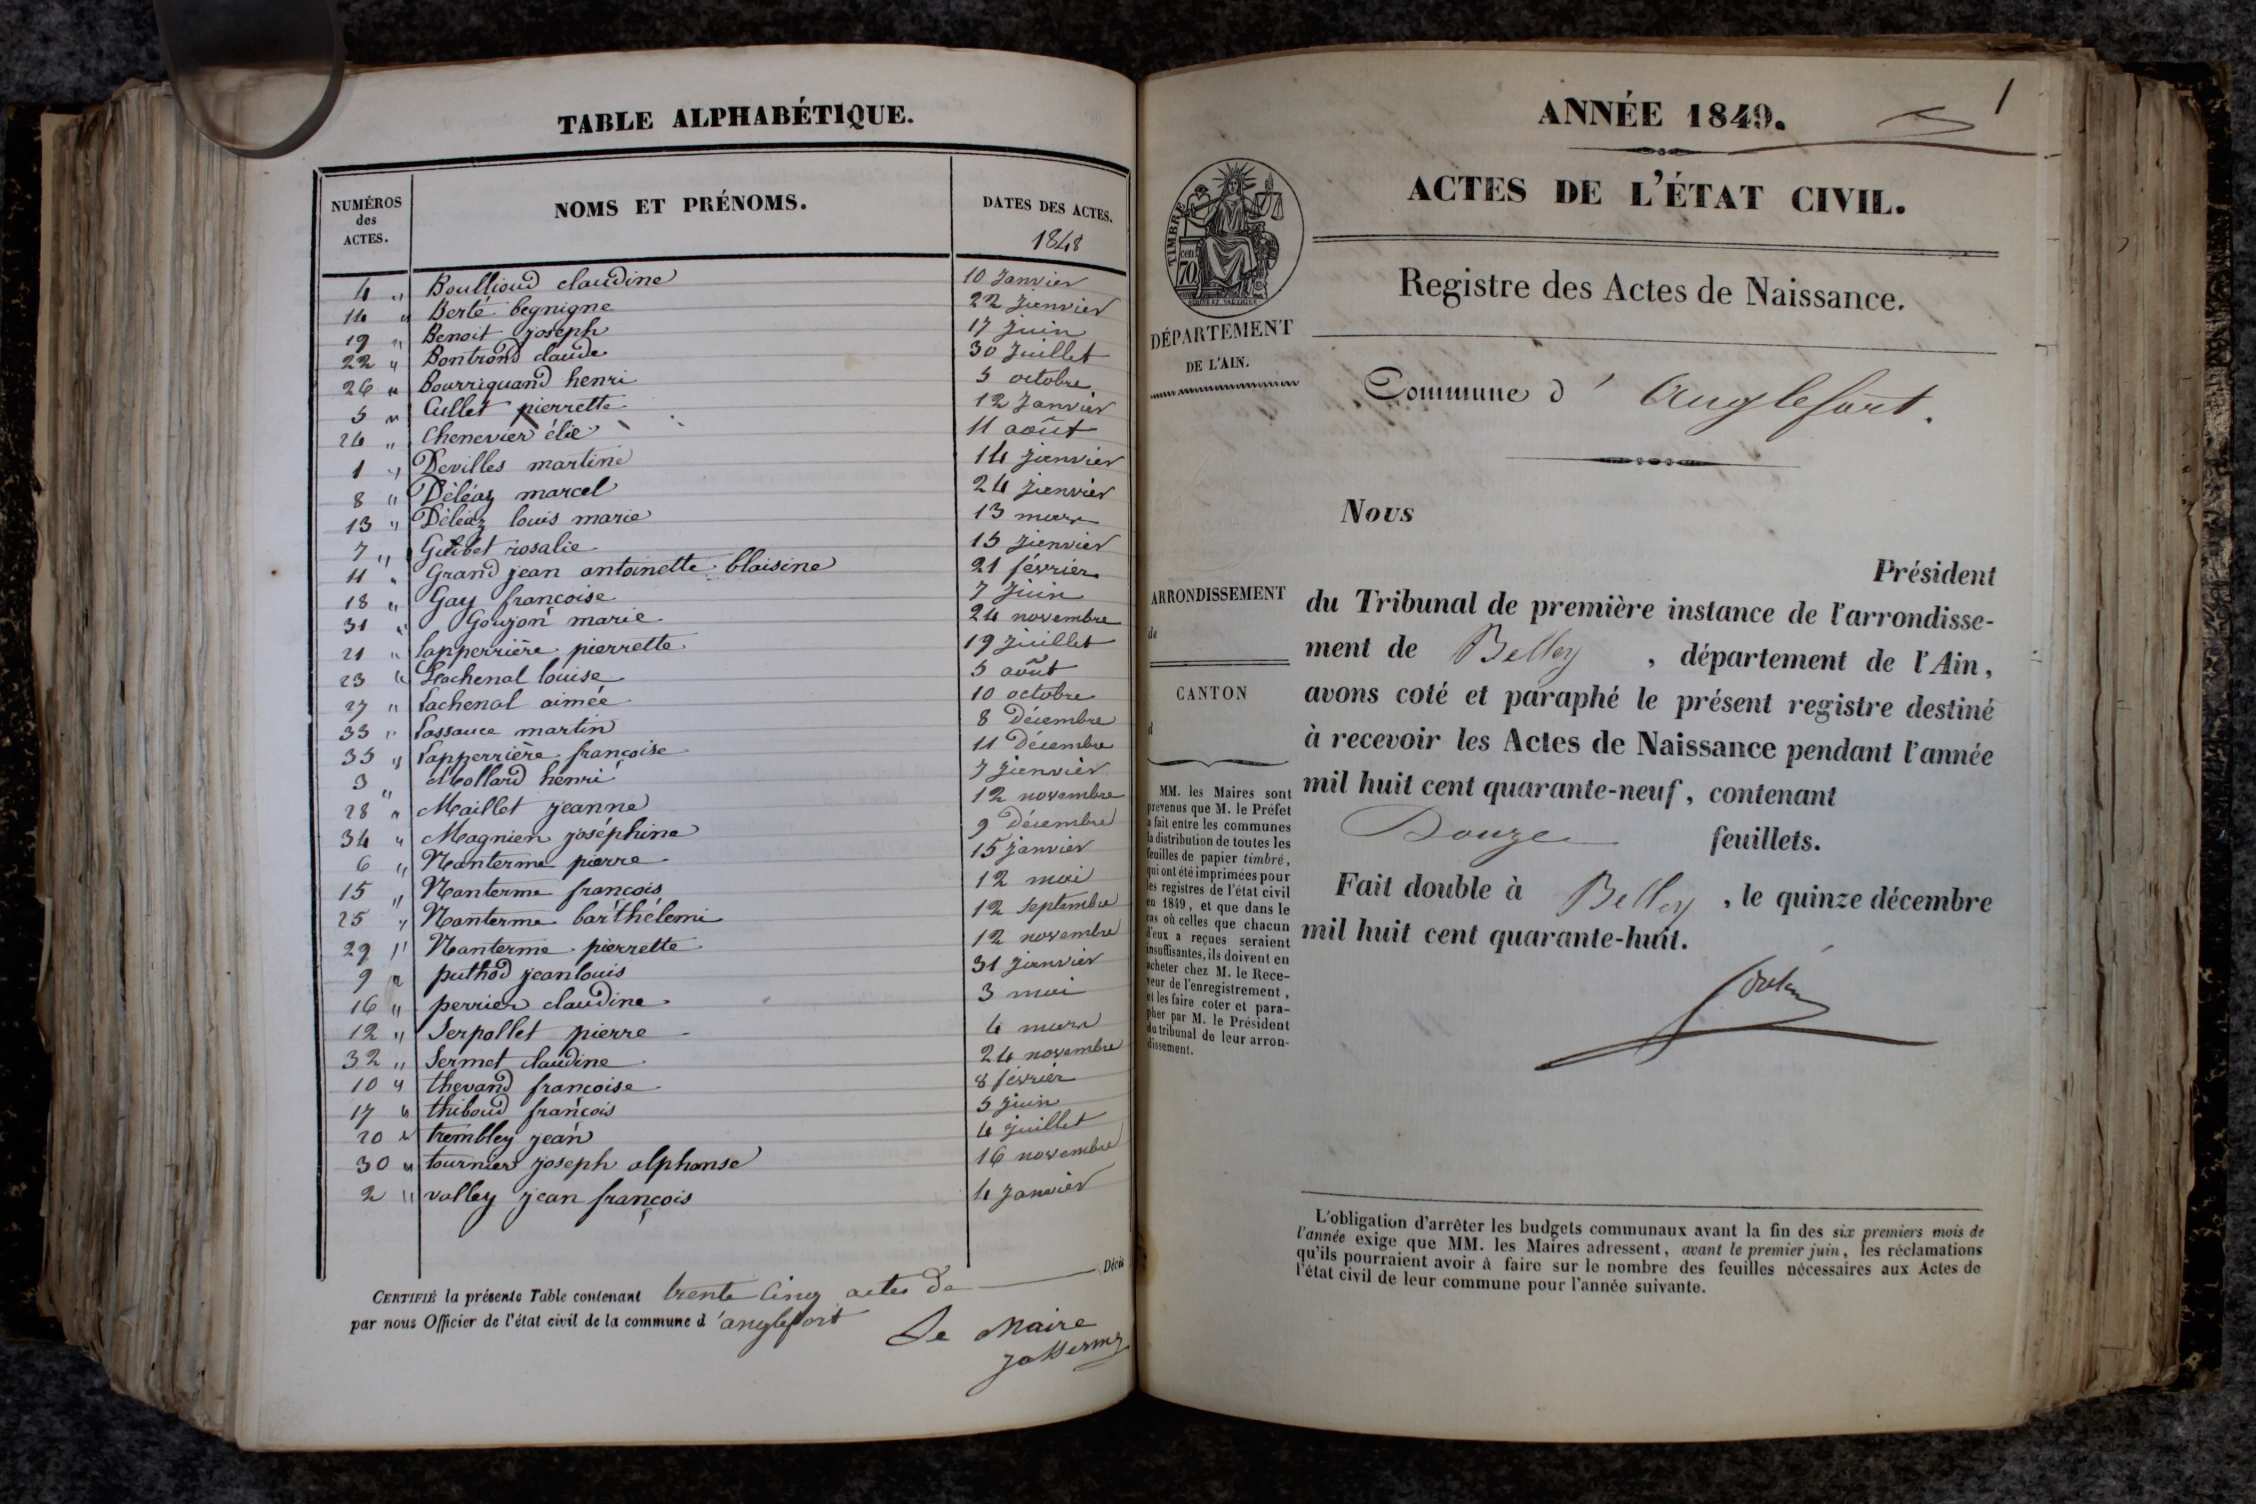 TABLE ALPHABÉTIQUE.
NUMÉROS des ACTES. NOMS ET PRÉNOMS. DATES DES ACTES.
1848
4 " Boullioud claudine 10 Janvier
14 " Berté begnigne 22 Janvier
19 " Benoit joseph 17 juin
22 " Bontrond claude 30 Juillet
26 " Bourriquand henri 5 octobre
5 " Cullet pierrette 12 Janvier
24 " Chenevier élie 11 août
1 " Devilles martine 14 Janvier
8 " Déléaz marcel 24 Janvier
13 " Déléaz louis marie 13 mars
7 " Guibet rosalie 15 Janvier
11 " Grand jean antoinette blaisine 21 février
18 " Gay françoise 7 Juin
31 " Goujon marie 24 novembre
21 " Lapperrière pierrette 19 Juillet
23 " Lachenal louise 5 août
27 " Lachenal aimée 10 octobre
33 " Lassauce martin 8 Décembre
35 " Lapperrière françoise 11 Décembre
3 " Mollard henri 7 Janvier
28 " Maillet jeanne 12 novembre
34 " Magnien joséphine 9 Décembre
6 " Nanterme pierre 15 Janvier
15 " Nanterme françois 12 mai
25 " Nanterme barthélemi 12 Septembre
29 " Nanterme pierrette 12 novembre
9 " puthod jean louis 31 Janvier
16 " perrier claudine 3 mai
12 " Serpollet pierre 4 mars
32 " Sermet claudine 24 novembre
10 " thevand françoise 8 février
17 " thiboud françois 5 juin
20 " trembley jean 4 juillet
30 " tournier joseph alphonse 16 novembre
2 " valley jean françois 4 Janvier
CERTIFIÉ la présente Table contenant trente Cinq actes de Décès
par nous Officier de l'état civil de la commune d'anglefort
Le Maire
1
ANNÉE 1849.
ACTES DE L'ÉTAT CIVIL.
TIMBRE
70 cen
Registre des Actes de Naissance.
DÉPARTEMENT
DE L'AIN.
Commune d'Anglefort.
Nous
Président
ARRONDISSEMENT
de
CANTON
d
du Tribunal de première instance de l'arrondisse-
ment de Belley, département de l'Ain,
avons coté et paraphé le présent registre destiné
à recevoir les Actes de Naissance pendant l'année
mil huit cent quarante-neuf, contenant
Douze feuillets.
Fait double à Belley, le quinze décembre
mil huit cent quarante-huit.
MM. les Maires sont
prévenus que M. le Préfet
a fait entre les communes
la distribution de toutes les
feuilles de papier timbré,
qui ont été imprimées pour
les registres de l'état civil
en 1849, et que dans le
cas où celles que chacun
d'eux a reçues seraient
insuffisantes, ils doivent en
acheter chez M. le Rece-
veur de l'enregistrement,
et les faire coter et para-
pher par M. le Président
du tribunal de leur arron-
dissement.
L'obligation d'arrêter les budgets communaux avant la fin des six premiers mois de
l'année exige que MM. les Maires adressent, avant le premier juin, les réclamations
qu'ils pourraient avoir à faire sur le nombre des feuilles nécessaires aux Actes de
l'état civil de leur commune pour l'année suivante.